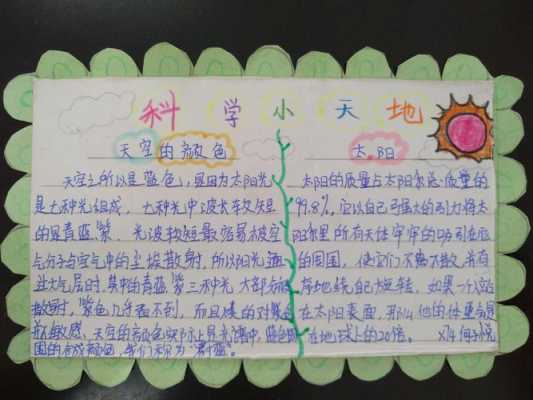 科学小天地
天空的颜色
天空之所以是蓝色,是因为太阳光
是七种光组成,七种光中波长较短
的是青蓝紫,光波较短最容易被空
气分子与空气中的尘埃散射,所以阳光通
过大气层时,其中的青蓝紫三种光大部分被
散射,紫色几乎看不到,而且人的对紫色
敏感,天空的颜色实际上是光谱中蓝色
围的合成颜色,我们称为"蔚蓝"。
太阳
太阳的质量占太阳系总质量的
99.8%,它以自己强大的引力将太
阳系里所有天体牢牢的吸引在它
的周围,使它们不离不散,井有
有序地绕自己旋转,如果一个人站
在太阳表面,那么他的体重会是
在地球上的20倍。